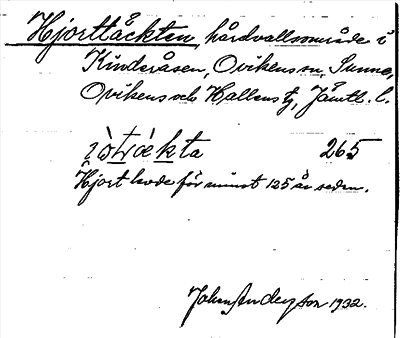 Hjorttäckten, hårdvallsområde i
Kinderåsen, Ovikens sn, Sunne,
Ovikens och Hallens tg, Jämtl. l.
265
Hjort levde för minst 125 år sedan.
Johan Anderzson 1932.